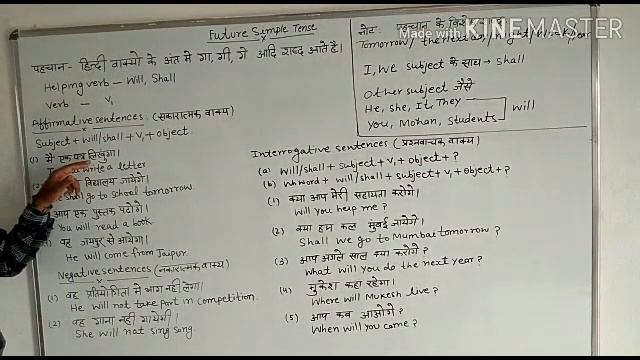 Future Simple Tense
पहचान- हिन्दी वाक्यो के अंत मे गा, गी, गे आदि शब्द आते है।
Helping verb – Will, Shall
Verb – V₁
Affirmative sentences (सकारात्मक वाक्य)
Subject + will/shall + V₁ + Object.
(1) मै एक पत्र लिखुगा।
write a letter.
विद्यालय जायेगे।
shall go to school tomorrow.
आप एक पुस्तक पढोगे।
You will read a book.
वह जयपुर से आयेगा।
He will come from Jaipur.
Negative sentences (नकारात्मक वाक्य)
(1) वह प्रतियोगिता मे भाग नही लेगा।
He will not take part in competition.
(2) वह गाना नही गायेगी।
She will not sing song.
नोट: पहचान के
Tomorrow / the next
I, We subject के साथ → shall
Other subject जैसे
He, She, It, They
You, Mohan, Students
will
Interrogative sentences (प्रश्नवाचक वाक्य)
(a) Will/shall + subject + V₁ + object + ?
(b) Wh word + will / shall + subject + V₁ + object + ?
(1) क्या आप मेरी सहायता करोगे?
Will you help me?
(2) क्या हम कल मुंबई जायेगे।
Shall we go to Mumbai tomorrow?
(3) आप अगले साल क्या करोगे?
What will you do the next year?
(4) मुकेश कहा रहेगा।
Where will Mukesh live?
(5) आप कब आओगे?
When will you come?
Made with KINEMASTER